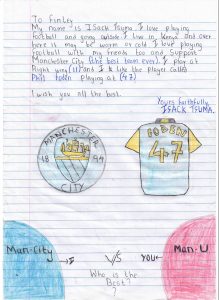 To Finley
My name is ISack Tsuma. I love playing
football and going outside. I live in Kenya and over
here is may be warm or cold I love playing
football with my friends too and Support
Manchester City (the best team ever). I play at
Right wing (11) and I like the player called
Phil foden playing at (47)
I wish you all the best.
Yours faithfully,
ISACK TSUMA.
MANCHESTER
18 94
CITY
FODEN
47
Man-City
V/S
YOU
Man-U
Who is the
Best?
?